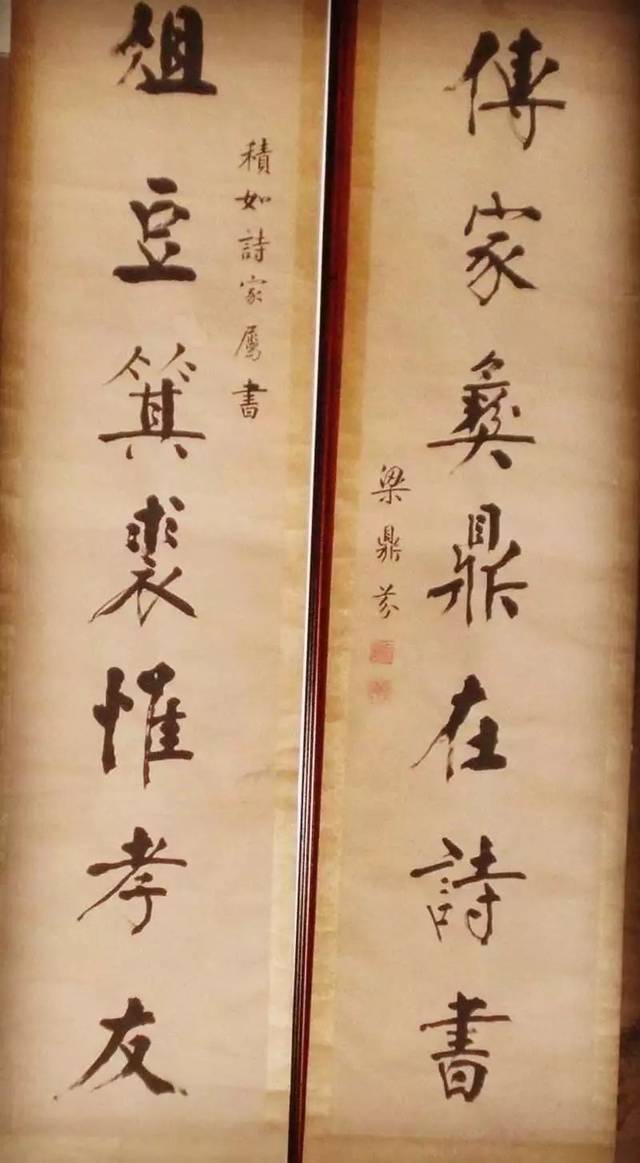 傳家彝鼎在詩書
梁鼎芬
積如詩家屬書
俎豆箕裘惟孝友